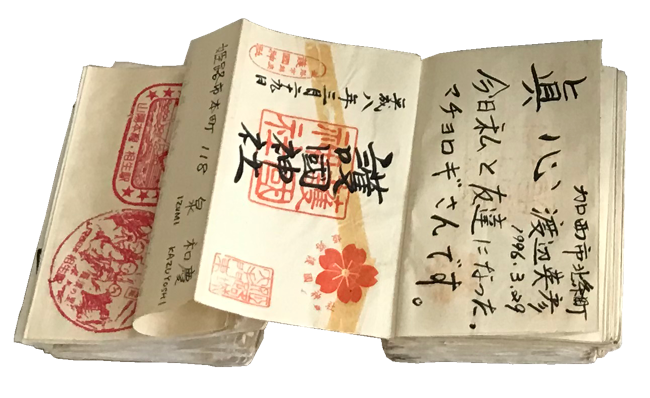 眞心
加西市北条町
渡辺英彦
1996.3.29
今日私と友達になった。
マチヨロギさんです。
護國神社
平成八年三月二十九日
姫路市本町118
泉 和慶
IZUMI KAZUYOSHI